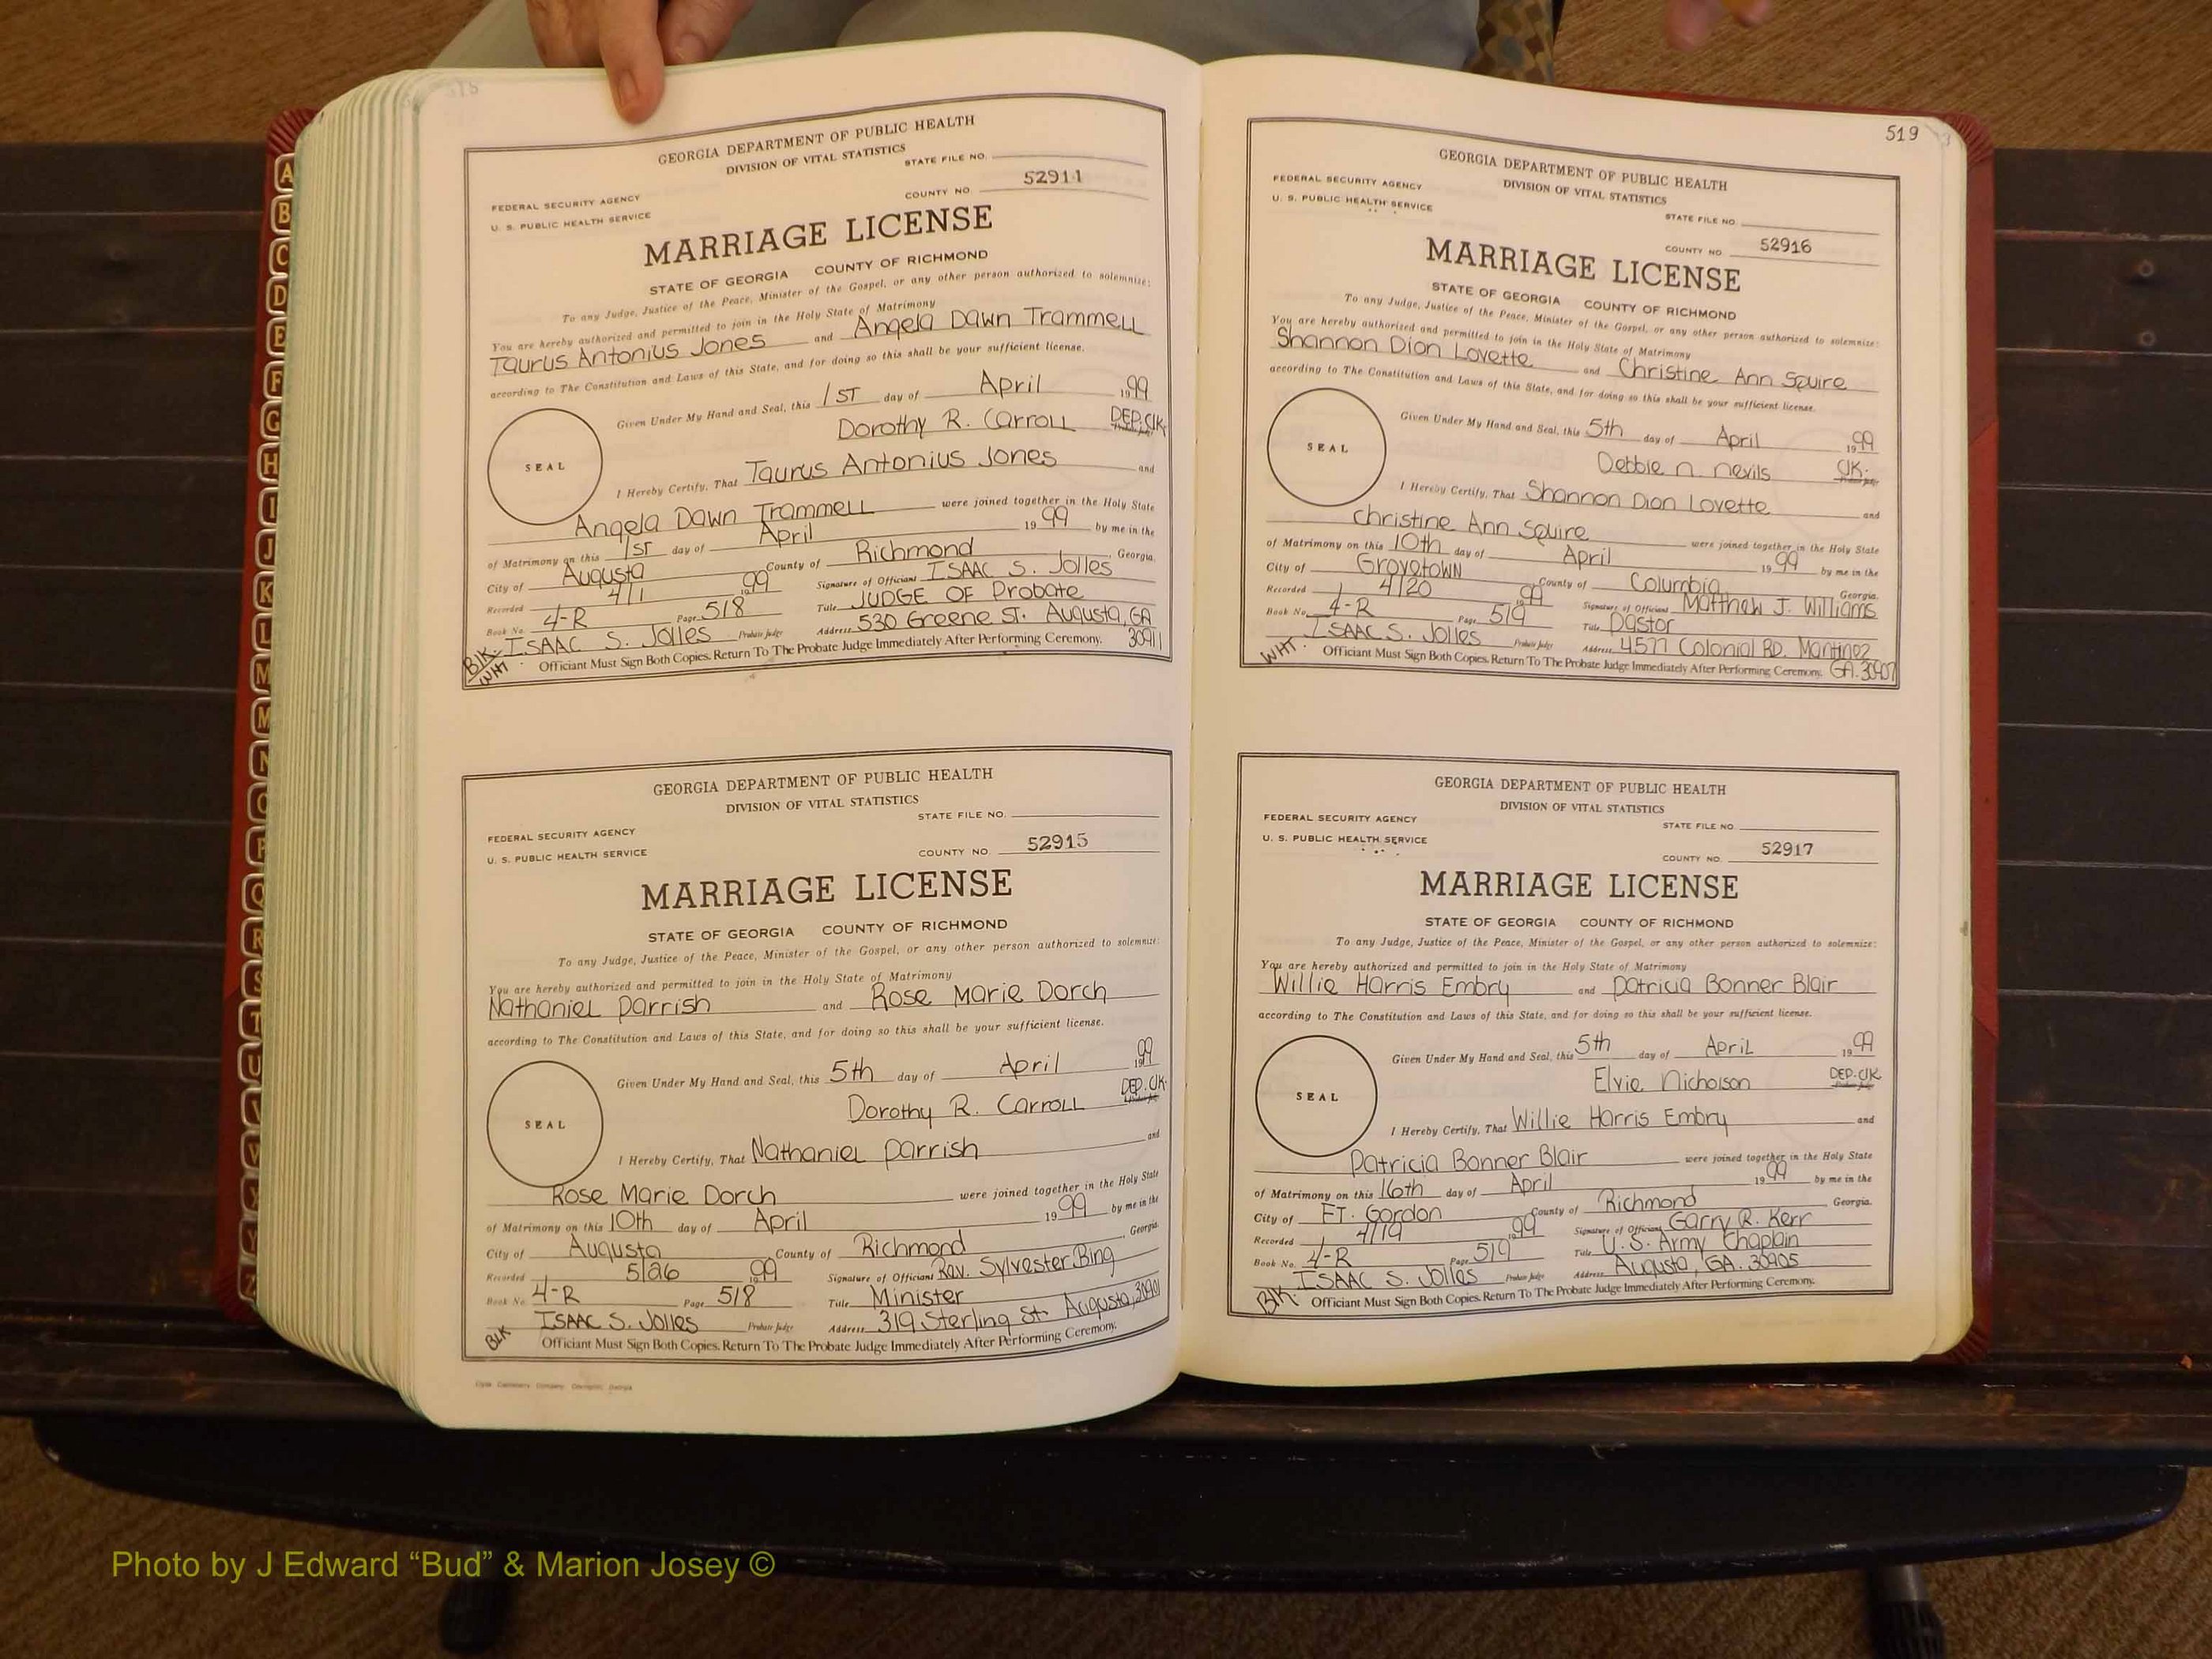 518
GEORGIA DEPARTMENT OF PUBLIC HEALTH
DIVISION OF VITAL STATISTICS
STATE FILE NO.
FEDERAL SECURITY AGENCY
COUNTY NO 52911
U. S. PUBLIC HEALTH SERVICE
MARRIAGE LICENSE
STATE OF GEORGIA COUNTY OF RICHMOND
To any Judge, Justice of the Peace, Minister of the Gospel, or any other person authorized to solemnize:
You are hereby authorized and permitted to join in the Holy State of Matrimony
Taurus Antonius Jones and Angela Dawn Trammell
according to The Constitution and Laws of this State, and for doing so this shall be your sufficient license.
Given Under My Hand and Seal, this 1ST day of April 1999
Dorothy R. Carroll DEP. Clk.
SEAL
I Hereby Certify, That Taurus Antonius Jones and
Angela Dawn Trammell were joined together in the Holy State
of Matrimony on this 1ST day of April 1999 by me in the
City of Augusta County of Richmond, Georgia.
Recorded 4/1 1999 Signature of Officiant ISAAC S. Jolles
Book No. 4-R Page 518 Title JUDGE OF Probate
ISAAC S. Jolles Probate Judge Address 530 Greene St. Augusta, GA
BLK. WHT. Officiant Must Sign Both Copies. Return To The Probate Judge Immediately After Performing Ceremony. 30911
GEORGIA DEPARTMENT OF PUBLIC HEALTH
DIVISION OF VITAL STATISTICS
STATE FILE NO.
FEDERAL SECURITY AGENCY
COUNTY NO. 52915
U. S. PUBLIC HEALTH SERVICE
MARRIAGE LICENSE
STATE OF GEORGIA COUNTY OF RICHMOND
To any Judge, Justice of the Peace, Minister of the Gospel, or any other person authorized to solemnize:
You are hereby authorized and permitted to join in the Holy State of Matrimony
Nathaniel Parrish and Rose Marie Dorch
according to The Constitution and Laws of this State, and for doing so this shall be your sufficient license.
Given Under My Hand and Seal, this 5th day of April 1999
Dorothy R. Carroll DEP. Clk.
SEAL
I Hereby Certify, That Nathaniel Parrish and
Rose Marie Dorch were joined together in the Holy State
of Matrimony on this 10th day of April 1999 by me in the
City of Augusta County of Richmond, Georgia.
Recorded 5/26 1999 Signature of Officiant Rev. Sylvester Bing
Book No. 4-R Page 518 Title Minister
ISAAC S. Jolles Probate Judge Address 319 Sterling St. Augusta, 30901
BLK Officiant Must Sign Both Copies. Return To The Probate Judge Immediately After Performing Ceremony.
519
GEORGIA DEPARTMENT OF PUBLIC HEALTH
DIVISION OF VITAL STATISTICS
FEDERAL SECURITY AGENCY
U. S. PUBLIC HEALTH SERVICE
STATE FILE NO.
COUNTY NO. 52916
MARRIAGE LICENSE
STATE OF GEORGIA COUNTY OF RICHMOND
To any Judge, Justice of the Peace, Minister of the Gospel, or any other person authorized to solemnize:
You are hereby authorized and permitted to join in the Holy State of Matrimony
Shannon Dion Lovette and Christine Ann Squire
according to The Constitution and Laws of this State, and for doing so this shall be your sufficient license.
Given Under My Hand and Seal, this 5th day of April 1999
Debbie n. nevils Clk.
SEAL
I Hereby Certify, That Shannon Dion Lovette and
Christine Ann Squire were joined together in the Holy State
of Matrimony on this 10th day of April 1999 by me in the
City of Grovetown County of Columbia, Georgia.
Recorded 4/20 1999 Signature of Officiant Matthew J. Williams
Book No. 4-R Page 519 Title Pastor
ISAAC S. Jolles Probate Judge Address 4577 Colonial RD. Martinez
WHT. Officiant Must Sign Both Copies. Return To The Probate Judge Immediately After Performing Ceremony. GA. 30907
GEORGIA DEPARTMENT OF PUBLIC HEALTH
DIVISION OF VITAL STATISTICS
FEDERAL SECURITY AGENCY
STATE FILE NO.
U. S. PUBLIC HEALTH SERVICE
COUNTY NO. 52917
MARRIAGE LICENSE
STATE OF GEORGIA COUNTY OF RICHMOND
To any Judge, Justice of the Peace, Minister of the Gospel, or any other person authorized to solemnize:
You are hereby authorized and permitted to join in the Holy State of Matrimony
Willie Harris Embry and Patricia Bonner Blair
according to The Constitution and Laws of this State, and for doing so this shall be your sufficient license.
Given Under My Hand and Seal, this 5th day of April 1999
Elvie Nicholson DEP. Clk
SEAL
I Hereby Certify, That Willie Harris Embry and
Patricia Bonner Blair were joined together in the Holy State
of Matrimony on this 16th day of April 1999 by me in the
City of FT. Gordon County of Richmond, Georgia.
Recorded 4/19 1999 Signature of Officiant Garry R. Kerr
Book No. 4-R Page 519 Title U.S. Army Chaplain
ISAAC S. Jolles Probate Judge Address Augusta, GA. 30905
BLK. Officiant Must Sign Both Copies. Return To The Probate Judge Immediately After Performing Ceremony.
A
B
C
D
E
F
G
H
I
J
K
L
M
M
N
O
P
Q
R
S
T
U
V
W
X
Y
Z
Photo by J Edward “Bud” & Marion Josey ©